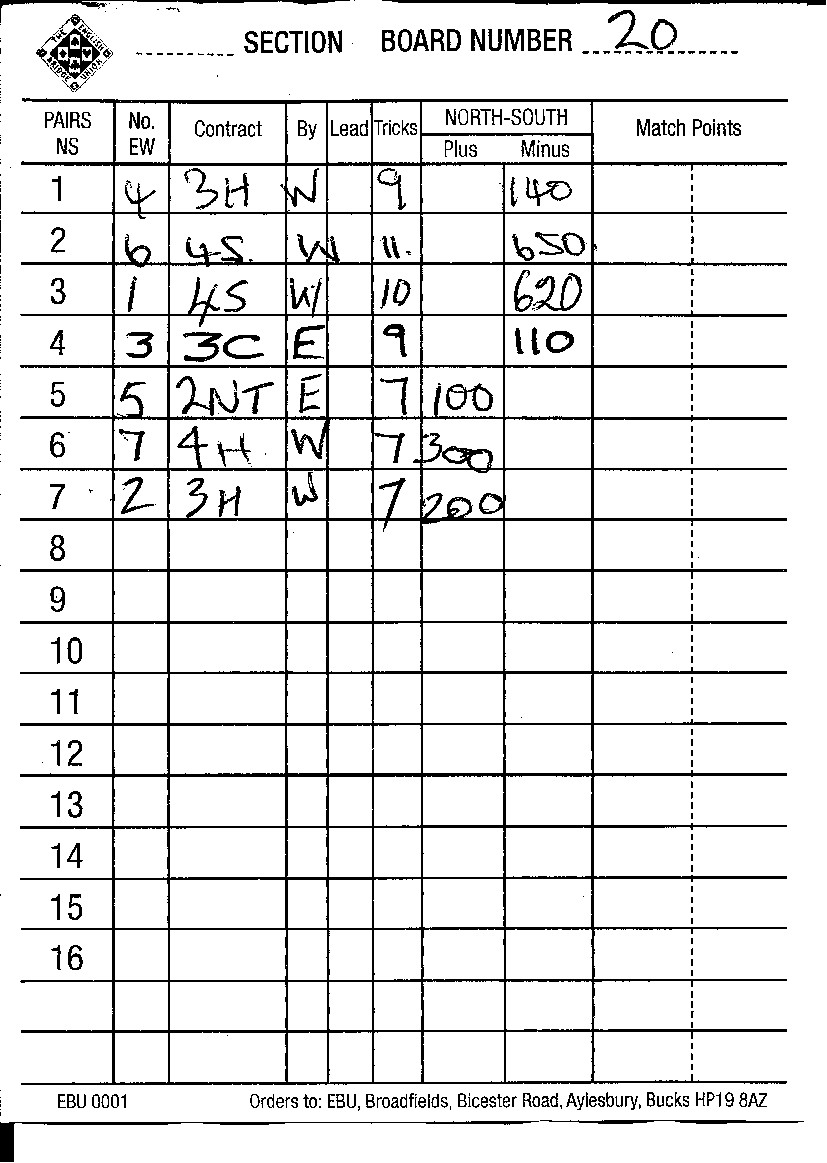 THE ENGLISH BRIDGE UNION
SECTION BOARD NUMBER 20
PAIRS NS No. EW Contract By Lead Tricks NORTH-SOUTH Plus Minus Match Points
1 4 3H W 9 140
2 6 4S. W 11. 650
3 1 4S W 10 620
4 3 3C E 9 110
5 5 2NT E 7 100
6 7 4H W 7 300
7 2 3H W 7 200
8
9
10
11
12
13
14
15
16
EBU 0001 Orders to: EBU, Broadfields, Bicester Road, Aylesbury, Bucks HP19 8AZ